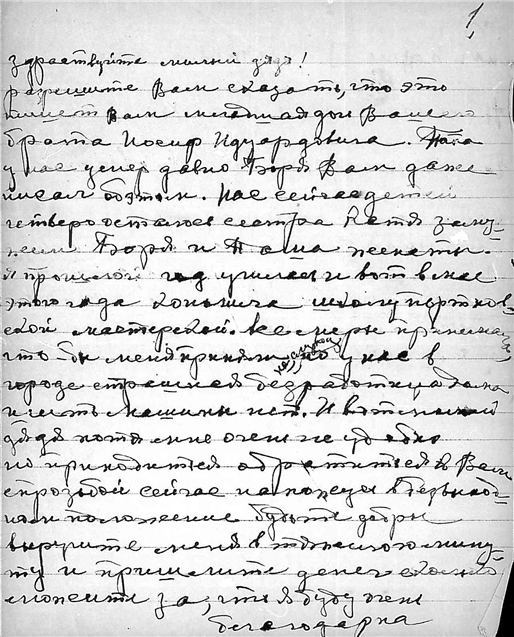 1,
здраствуйте милый дядя!
разрешите Вам сказать, что это
пишет Вам младшая дочь Вашего
брата Иосиф Идуардовича. Папа
у нас умер давно Боря Вам даже
писал об этом. Нас сейчас детей
четверо осталось сестра Катя заму-
жем Боря и Паша не женаты.
я прошлой год училась и вот в мае
этого года кончила школу портнов-
ской мастерской. Все меры принима
что бы меня приняли но у нас в
городе страшная безработица дома
шить машины нет. И вот милый
дядя хотя мне очень не удобно
но приходится обратиться к Вам
с прозьбой сейчас на нахожусь в безвыход-
ном положение будьте добры
выручите меня в тяжелою мину-
ту и пришлите денег сколько
можите за, что я буду очень
благодарна